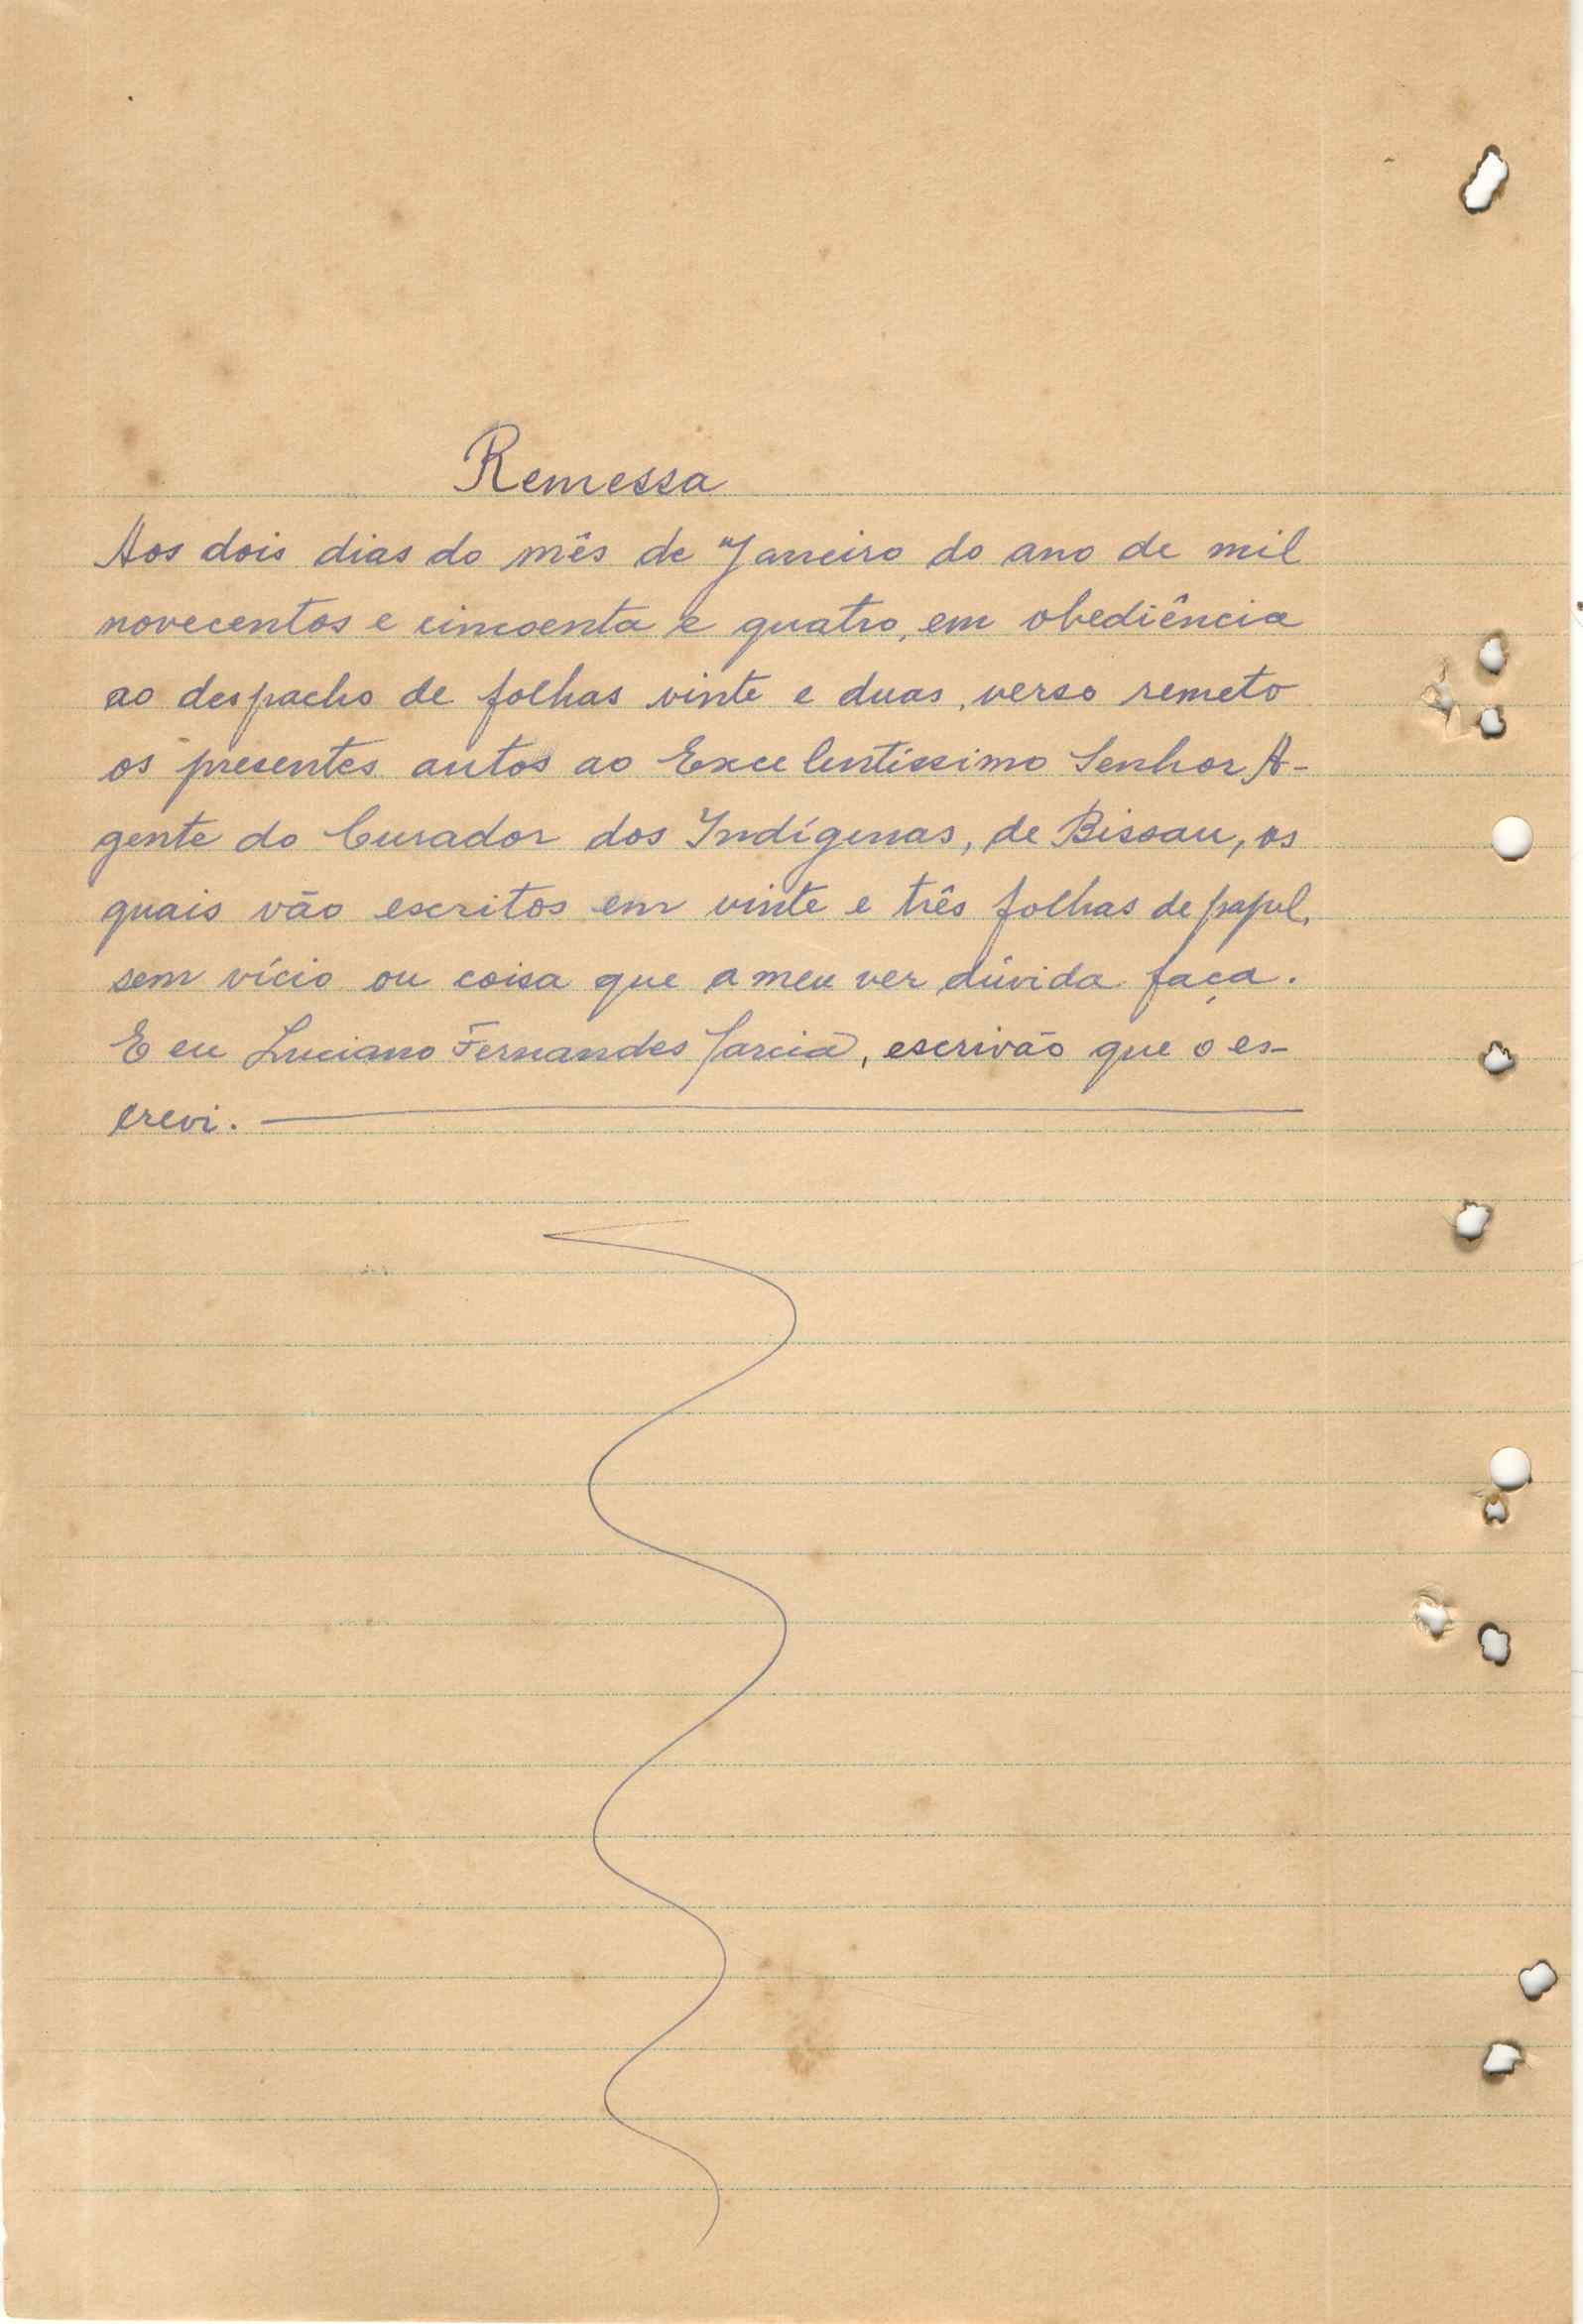 Remessa
Aos dois dias do mês de Janeiro do ano de mil
novecentos e cincoenta e quatro, em obediência
ao despacho de folhas vinte e duas, verso remeto
os presentes autos ao Excelentíssimo Senhor A-
gente do Curador dos Indígenas, de Bissau, os
quais vão escritos em vinte e três folhas de papel,
sem vício ou coisa que a meu ver dúvida faça.
E eu Luciano Fernandes Garcia, escrivão que o es-
crevi.